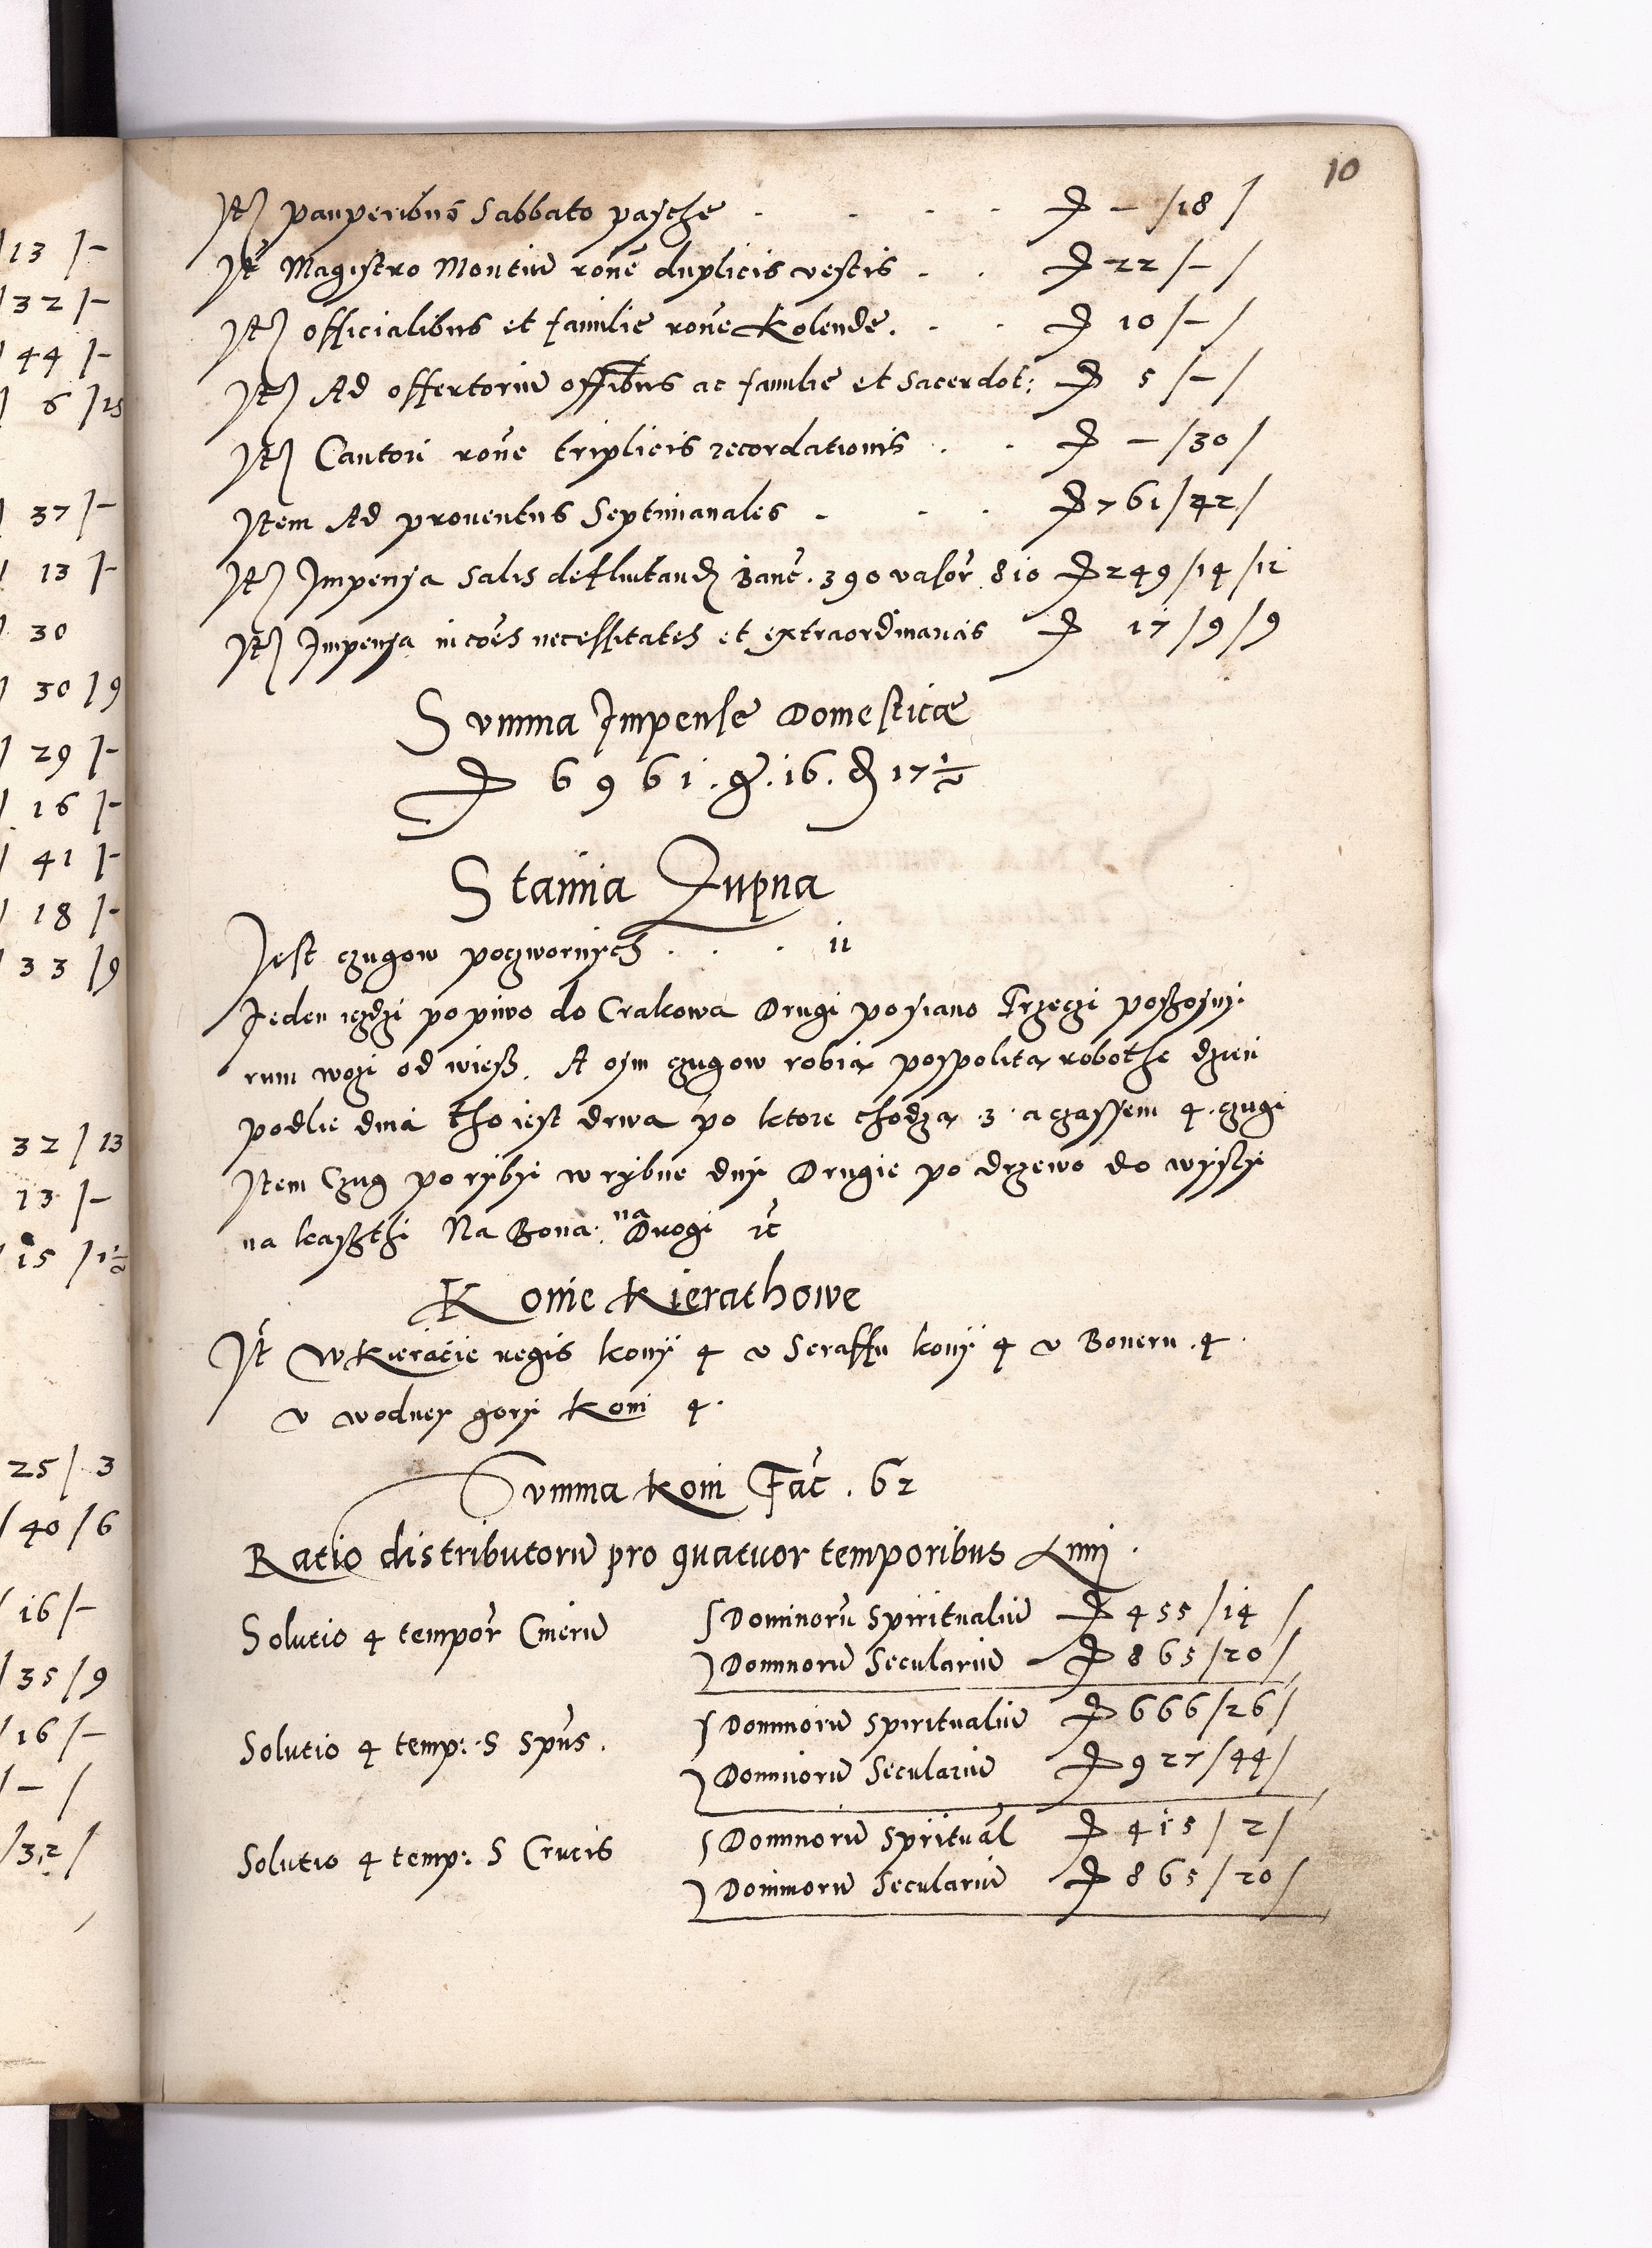 10
Itē pauperibus Sabbato pasche . . . . ₰ — /18/
Itē Magistro Montiū rōne duplicis vestis . . ₰ 22 /—/
Itē officialibus et familie rōne Kolende . . . ₰ 10 /—/
Itē Ad offertoriū offibus ac familie et Sacerdot: ₰ 5 /—/
Itē Cantori rōne triplicis recordationis . . ₰ — /30/
Item Ad proventus Septimanales . . . ₰ 761/42/
Itē Impensa Salis defluitand Banč. 390 valoř 810 ₰ 249/14/12
Itē Impensa in cōes necessitates et extraordinarias ₰ 17/9/9
Summa Impense Domesticæ
₰ 6961. g. 16. d 17½
Stainia Zupna
Jest czugow poczwornych . . . 11
Jeden iezdzi po piwo do Crakowa Drugi po siano Trzeczi poszosny
rum wozi od wiesz. A osm czugow robia pospolita robothe dzien
podlie dnia tho iest drwa po ktore chodza 3 a czassem 4 czugi
Item Czug po rybyi w rybne dny Drugie po drzewo do wyssy
na kaszthi Na Bona: na Drogi ꝛč
Konie Kierathowe
Itē W Kieracie regis kony 4 v Seraffu kony 4 v Boneru .4.
v wodney gory koni 4.
Summa koni Fač. 62
Ratio distributorū pro quatuor temporibus Anni.
Solutio 4 tempoř Cinerū
Dominorū Spiritualiū ₰ 455/14 /
Dominorū Seculariū ₰ 865/20/
Solutio 4 temp: S Spūs.
Dominorū Spiritualiū ₰ 666/26/
Dominorū Seculariū ₰ 927/44/
Solutio 4 temp: S Crucis
Dominorū Spirituāl ₰ 415/2/
Dominorū Seculariū ₰ 865/20/
/13/—
/32/—
/44/—
/6/15
/37/—
/13/—
/30
/30/9
/29/—
/16/—
/41/—
/18/—
/33/9
32/13
13/—
/15/1½
25/3
/40/6
/16/—
/35/9
/16/—
/—/
/32/